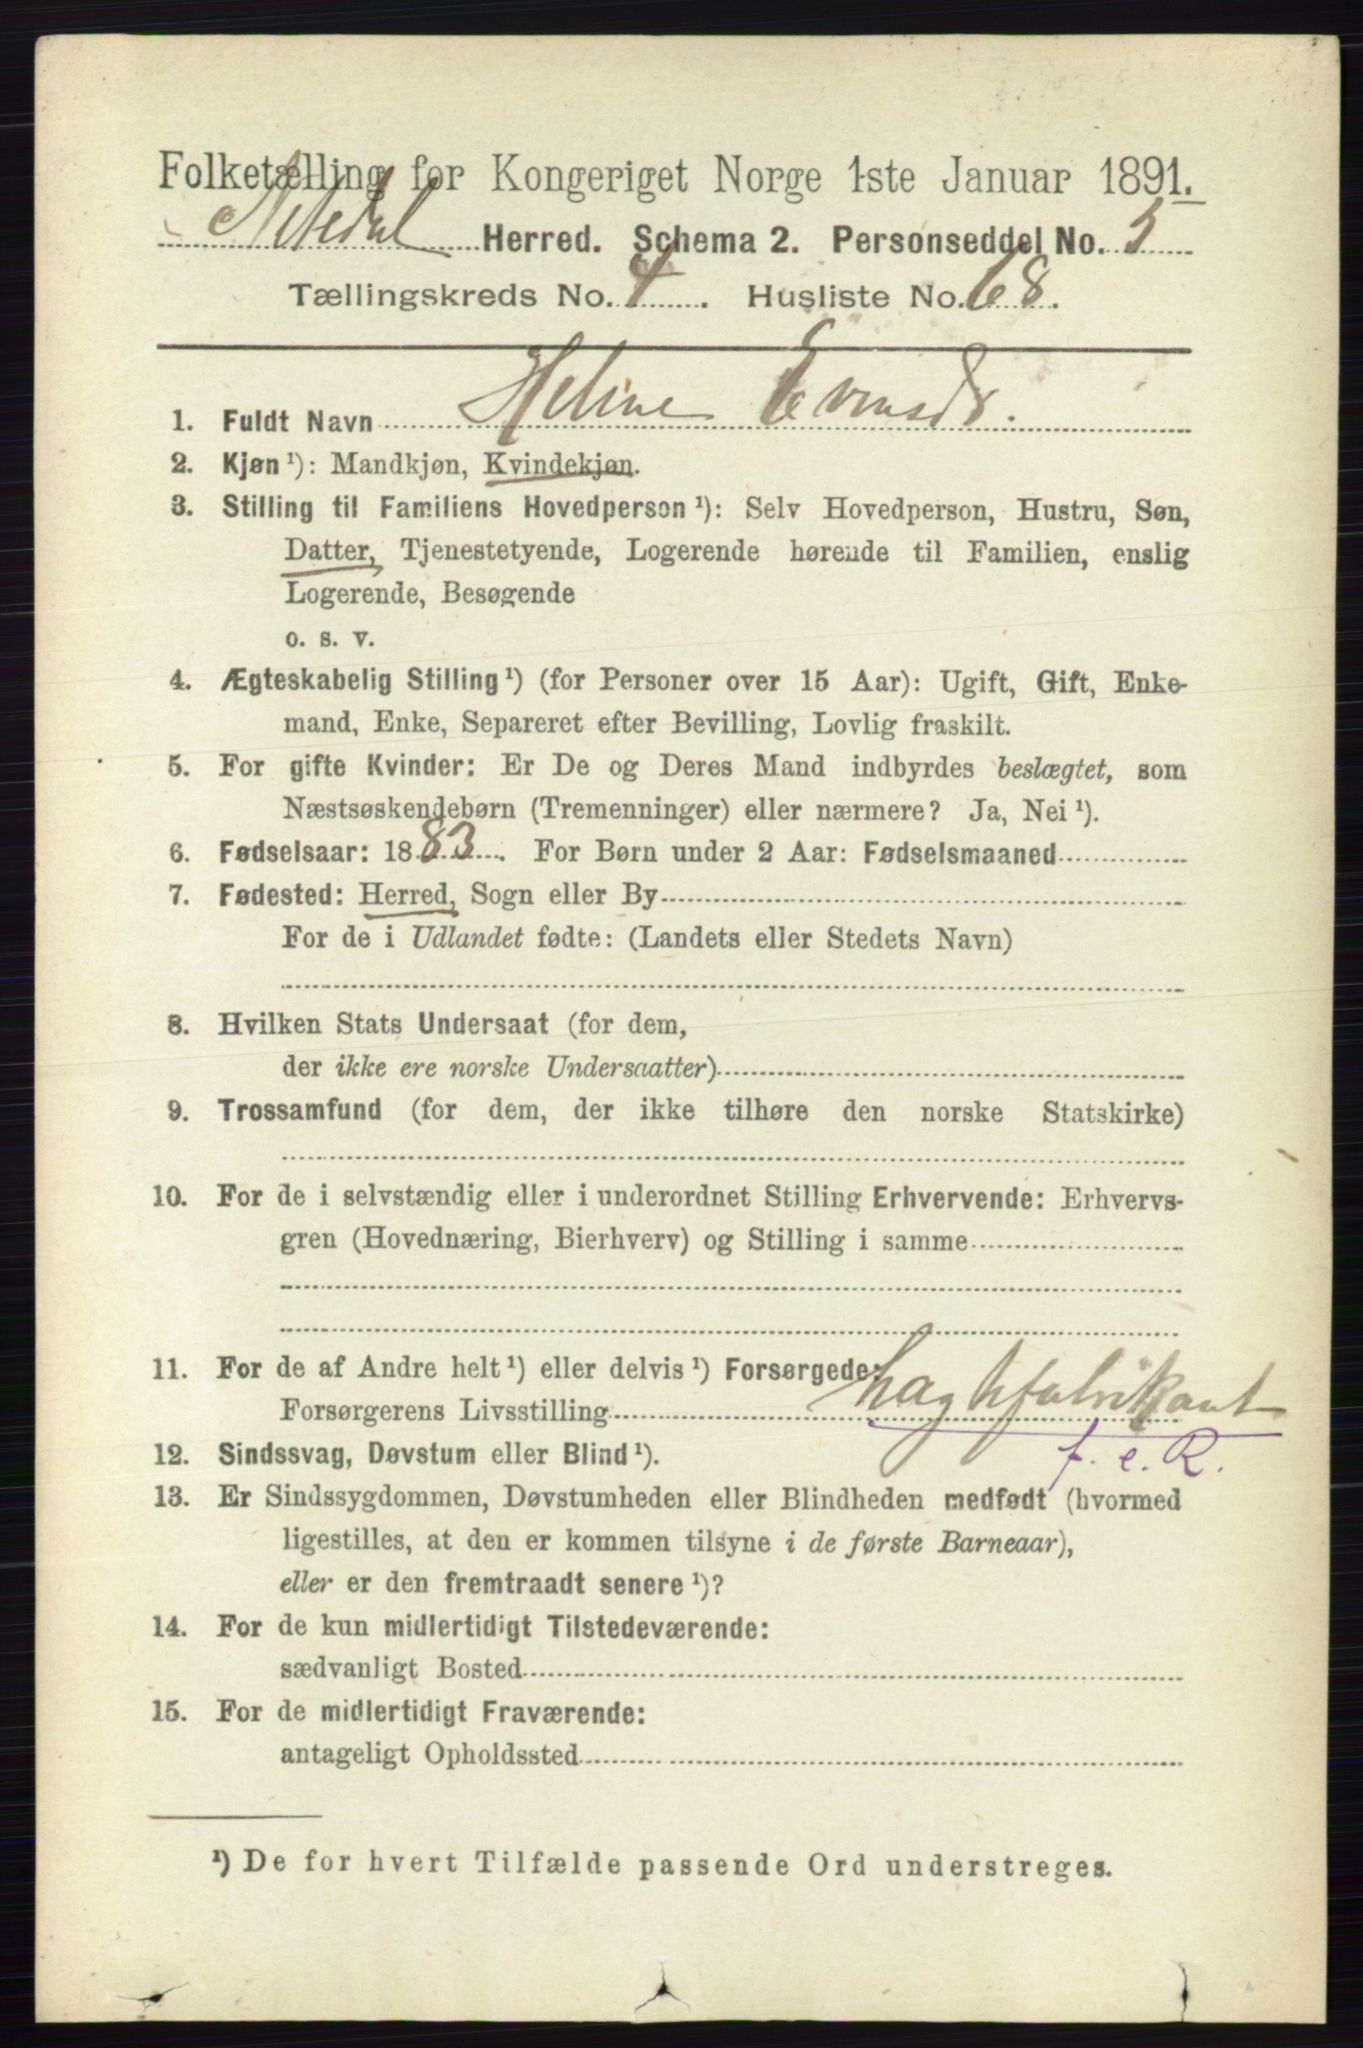 Folketælling for Kongeriget Norge 1ste Januar 1891.
Nitedal Herred. Schema 2. Personseddel No. 5
Tællingskreds No. 4. Husliste No. 68.
1. Fuldt Navn Heline Evensdr.
2. Kjøn ¹): Mandkjøn, Kvindekjøn.
3. Stilling til Familiens Hovedperson ¹): Selv Hovedperson, Hustru, Søn,
Datter, Tjenestetyende, Logerende hørende til Familien, enslig
Logerende, Besøgende
o. s. v.
4. Ægteskabelig Stilling ¹) (for Personer over 15 Aar): Ugift, Gift, Enke-
mand, Enke, Separeret efter Bevilling, Lovlig fraskilt.
5. For gifte Kvinder: Er De og Deres Mand indbyrdes beslægtet, som
Næstsøskendebørn (Tremenninger) eller nærmere? Ja, Nei ¹).
6. Fødselsaar: 1883. For Børn under 2 Aar: Fødselsmaaned
7. Fødested: Herred, Sogn eller By
For de i Udlandet fødte: (Landets eller Stedets Navn)
8. Hvilken Stats Undersaat (for dem,
der ikke ere norske Undersaatter)
9. Trossamfund (for dem, der ikke tilhøre den norske Statskirke)
10. For de i selvstændig eller i underordnet Stilling Erhvervende: Erhvervs-
gren (Hovednæring, Bierhverv) og Stilling i samme
11. For de af Andre helt ¹) eller delvis ¹) Forsørgede:
Forsørgerens Livsstilling
f. e. R.
12. Sindssvag, Døvstum eller Blind ¹).
13. Er Sindssygdommen, Døvstumheden eller Blindheden medfødt (hvormed
ligestilles, at den er kommen tilsyne i de første Barneaar),
eller er den fremtraadt senere ¹)?
14. For de kun midlertidigt Tilstedeværende:
sædvanligt Bosted
15. For de midlertidigt Fraværende:
antageligt Opholdssted
¹) De for hvert Tilfælde passende Ord understreges.